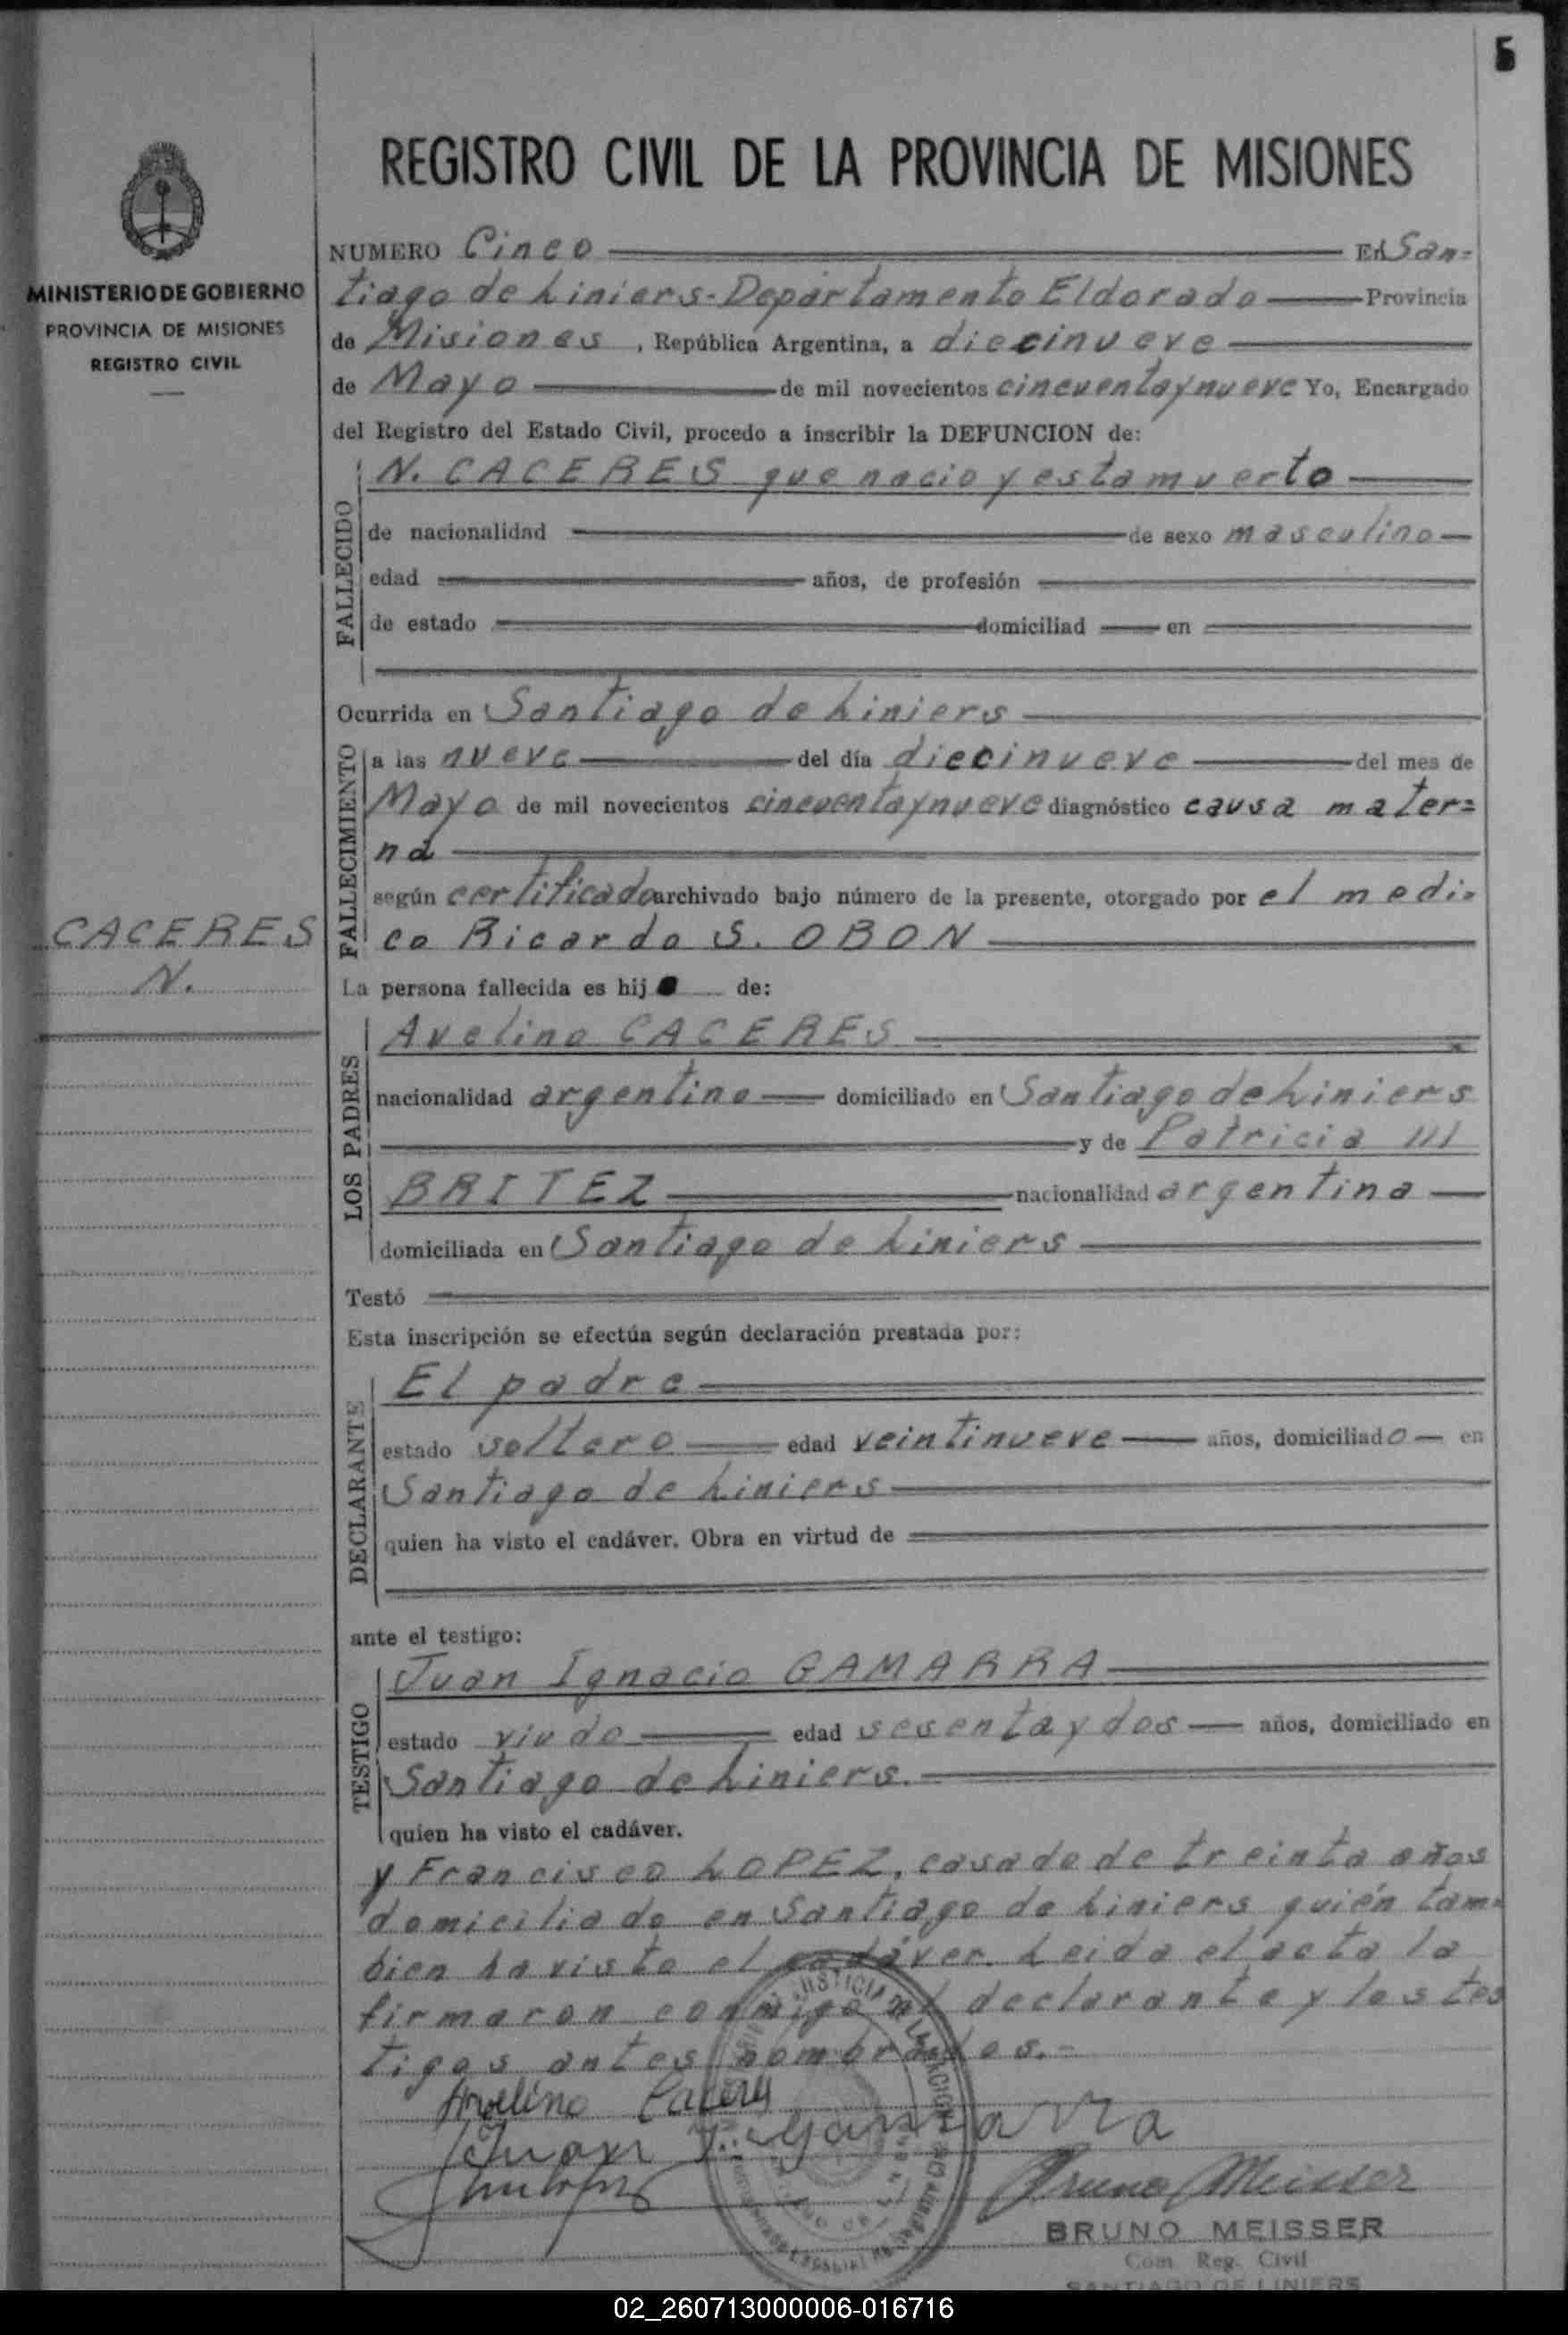 5
REGISTRO CIVIL DE LA PROVINCIA DE MISIONES
MINISTERIO DE GOBIERNO
PROVINCIA DE MISIONES
REGISTRO CIVIL
NUMERO Cinco En San=
tiago de Liniers-Departamento Eldorado Provincia
de Misiones, República Argentina, a diecinueve
de Mayo de mil novecientos cincuentaynueve Yo, Encargado
del Registro del Estado Civil, procedo a inscribir la DEFUNCION de:
FALLECIDO
N. CACERES que nacio y esta muerto
de nacionalidad de sexo masculino
edad años, de profesión
de estado domiciliad en
Ocurrida en Santiago de Liniers
FALLECIMIENTO
a las nueve del día diecinueve del mes de
Mayo de mil novecientos cincuentaynueve diagnóstico causa mater=
na
según certificado archivado bajo número de la presente, otorgado por el medi=
co Ricardo S. OBON
CACERES
N.
La persona fallecida es hij de:
LOS PADRES
Avelino CACERES
nacionalidad argentino domiciliado en Santiago de Liniers
y de Patricia
BRITEZ nacionalidad argentina
domiciliada en Santiago de Liniers
Testó
Esta inscripción se efectúa según declaración prestada por:
DECLARANTE
El padre
estado soltero edad veintinueve años, domiciliado en
Santiago de Liniers
quien ha visto el cadáver. Obra en virtud de
ante el testigo:
TESTIGO
Juan Ignacio GAMARRA
estado viudo edad sesenta y dos años, domiciliado en
Santiago de Liniers.
quien ha visto el cadáver.
y Francisco LOPEZ, casado de treinta años
domiciliado en Santiago de Liniers quién tam=
bien ha visto el cadáver. Leida el acta la
firmaron conmigo el declarante y los tes
tigos antes nombrados.-
Avelino Caceres
Juan I. Gamarra
Bruno Meisser
BRUNO MEISSER
Com. Reg. Civil
SANTIAGO DE LINIERS
02_260713000006-016716